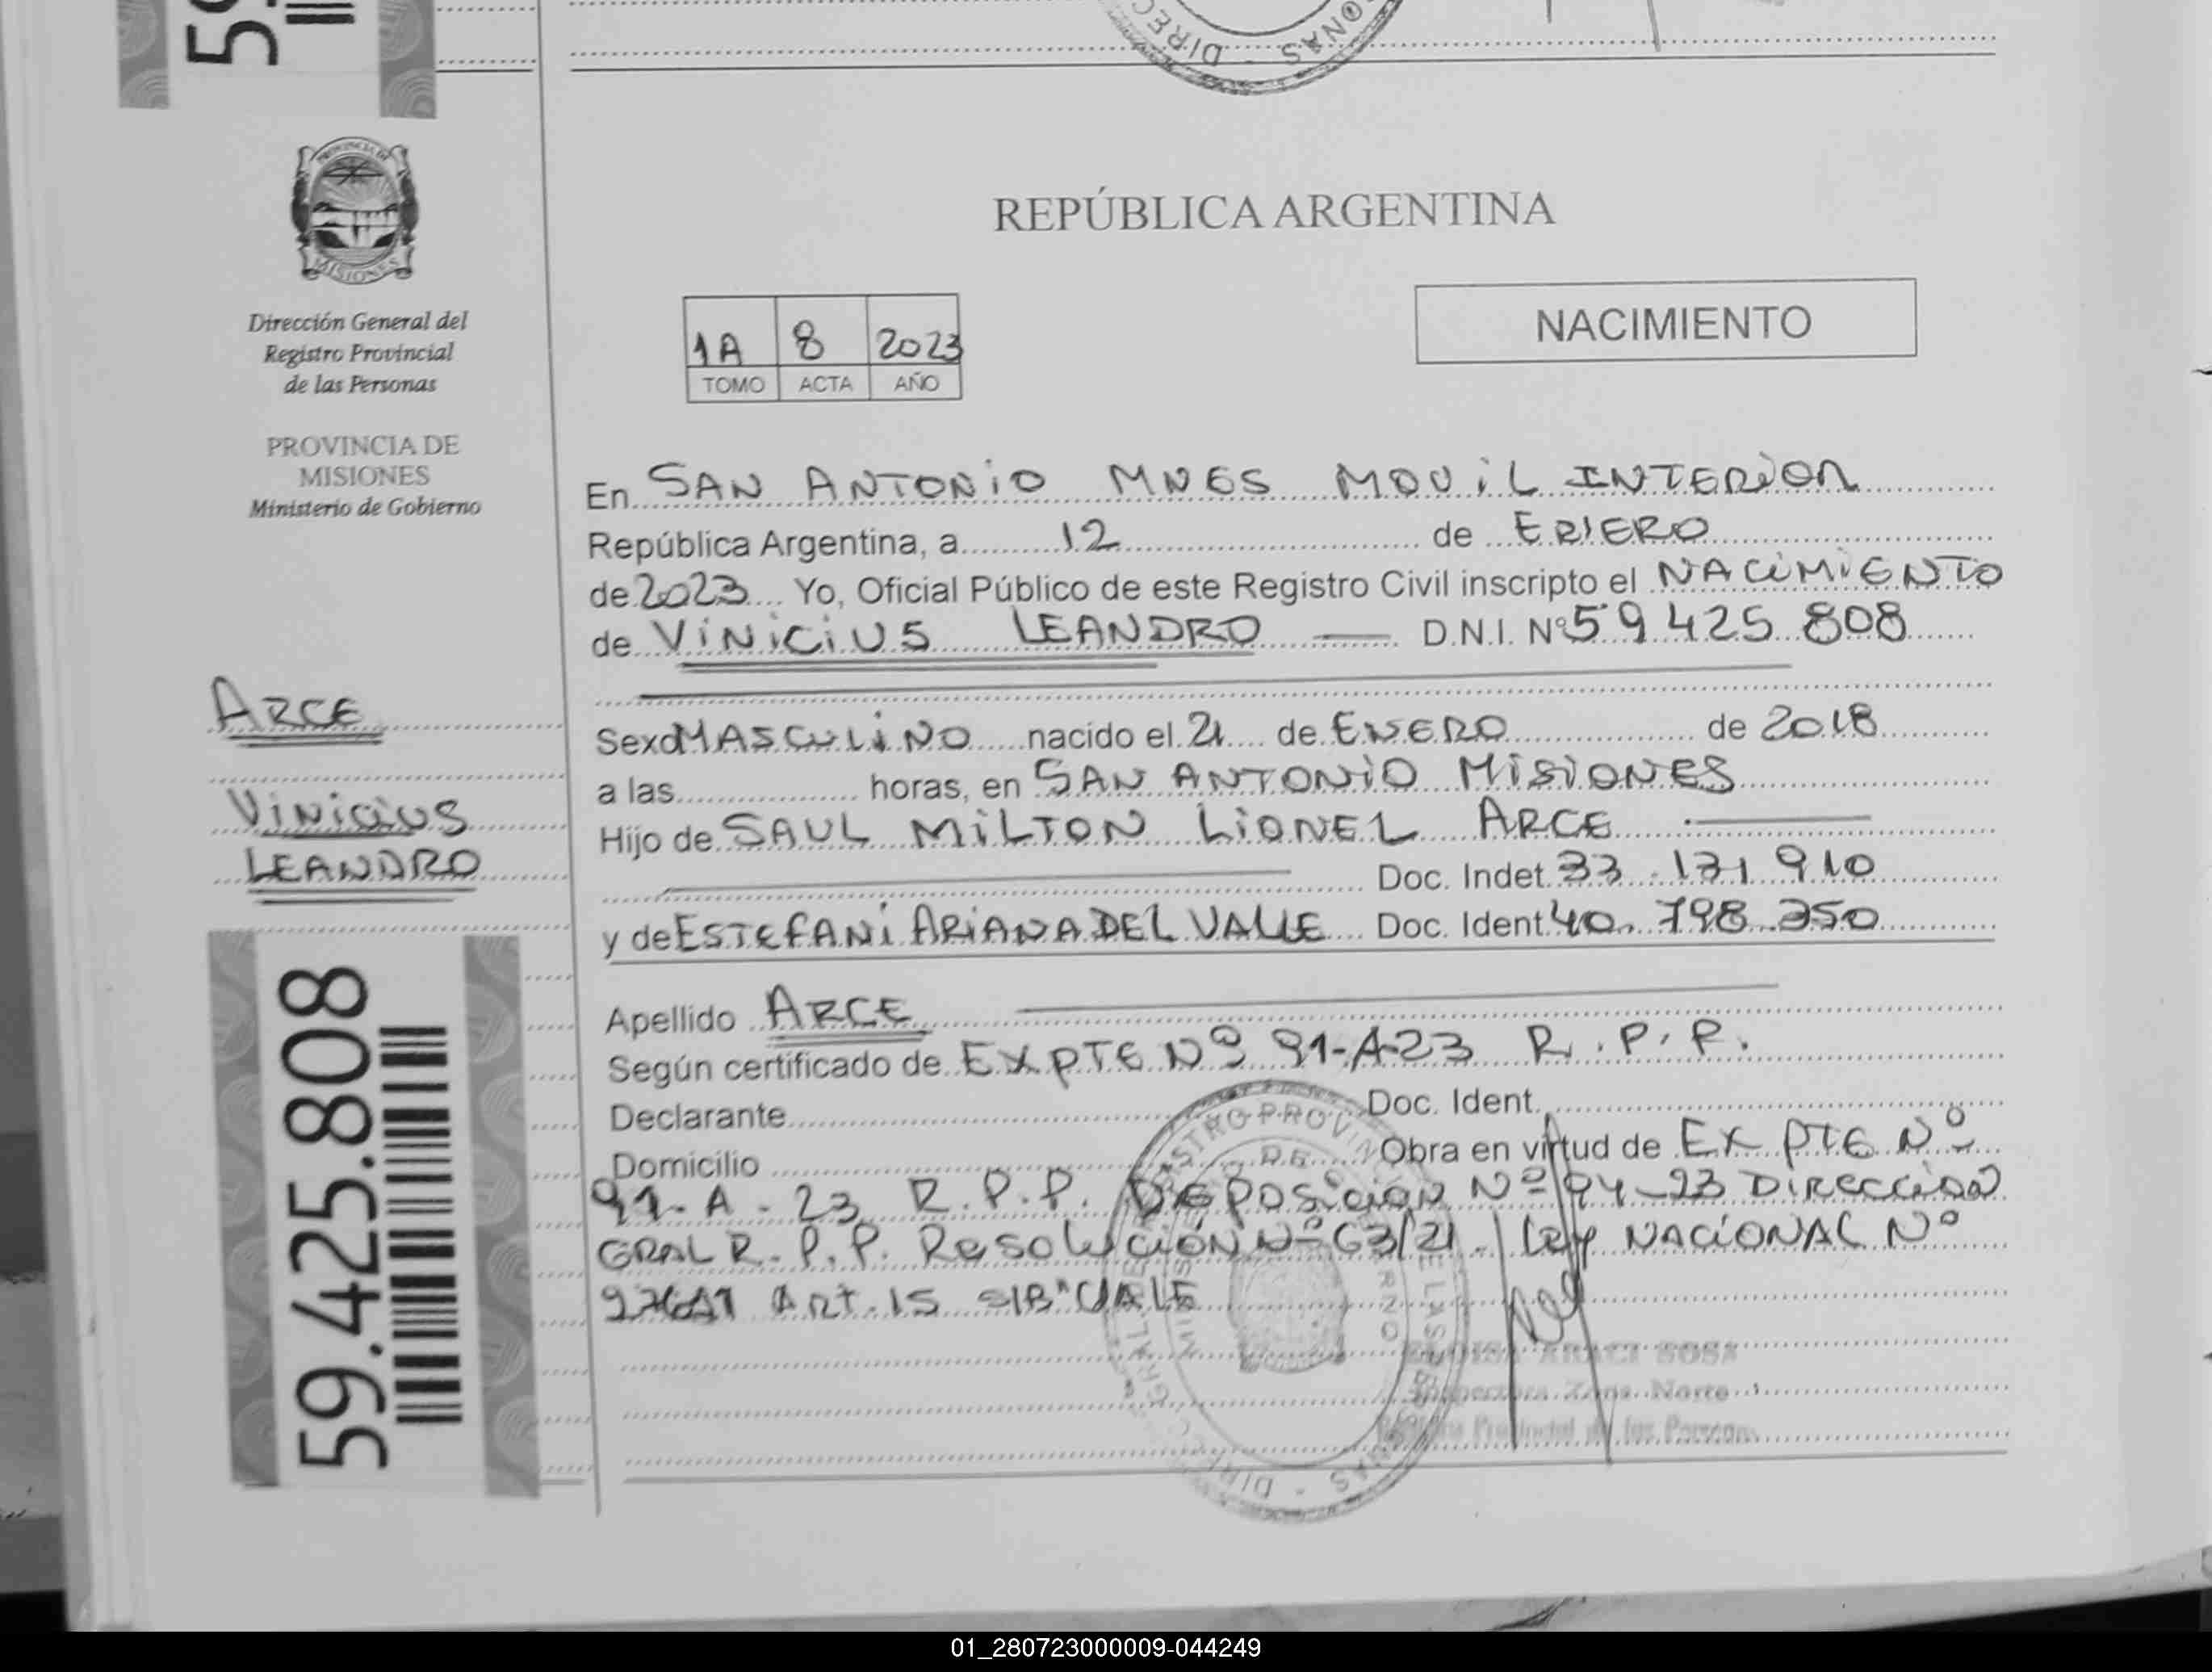 59
DIREC
ONAS
PROVINCIA DE
MISIONES
Dirección General del
Registro Provincial
de las Personas
PROVINCIA DE
MISIONES
Ministerio de Gobierno
ARCE
VINICIUS
LEANDRO
59.425.808
REPÚBLICA ARGENTINA
1A 8 2023
TOMO ACTA AÑO
NACIMIENTO
En SAN ANTONIO MNES MOVIL INTERIOR
República Argentina, a 12 de ENERO
de 2023 Yo, Oficial Público de este Registro Civil inscripto el NACIMIENTO
de VINICIUS LEANDRO D.N.I. Nº 59 425 808
Sexo MASCULINO nacido el 21 de ENERO de 2018
a las horas, en SAN ANTONIO MISIONES
Hijo de SAUL MILTON LIONEL ARCE
Doc. Indet. 33.131 910
y de ESTEFANI ARIANA DEL VALLE Doc. Ident. 40.798.350
Apellido ARCE
Según certificado de EXPTE Nº 91-A-23 R.P.P.
Declarante Doc. Ident.
Domicilio Obra en virtud de EXPTE Nº
91-A-23 R.P.P. DEPOSICION Nº 94-23 DIRECCION
GRAL R.P.P. Resolución Nº 63/21 Ley NACIONAL Nº
Art. 15
ARACI SOSA
Inspectora Zona Norte
Provincial de las Personas
01_280723000009-044249